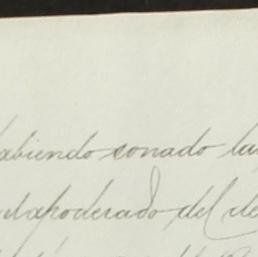 abiendo sonado la
el apoderado del de